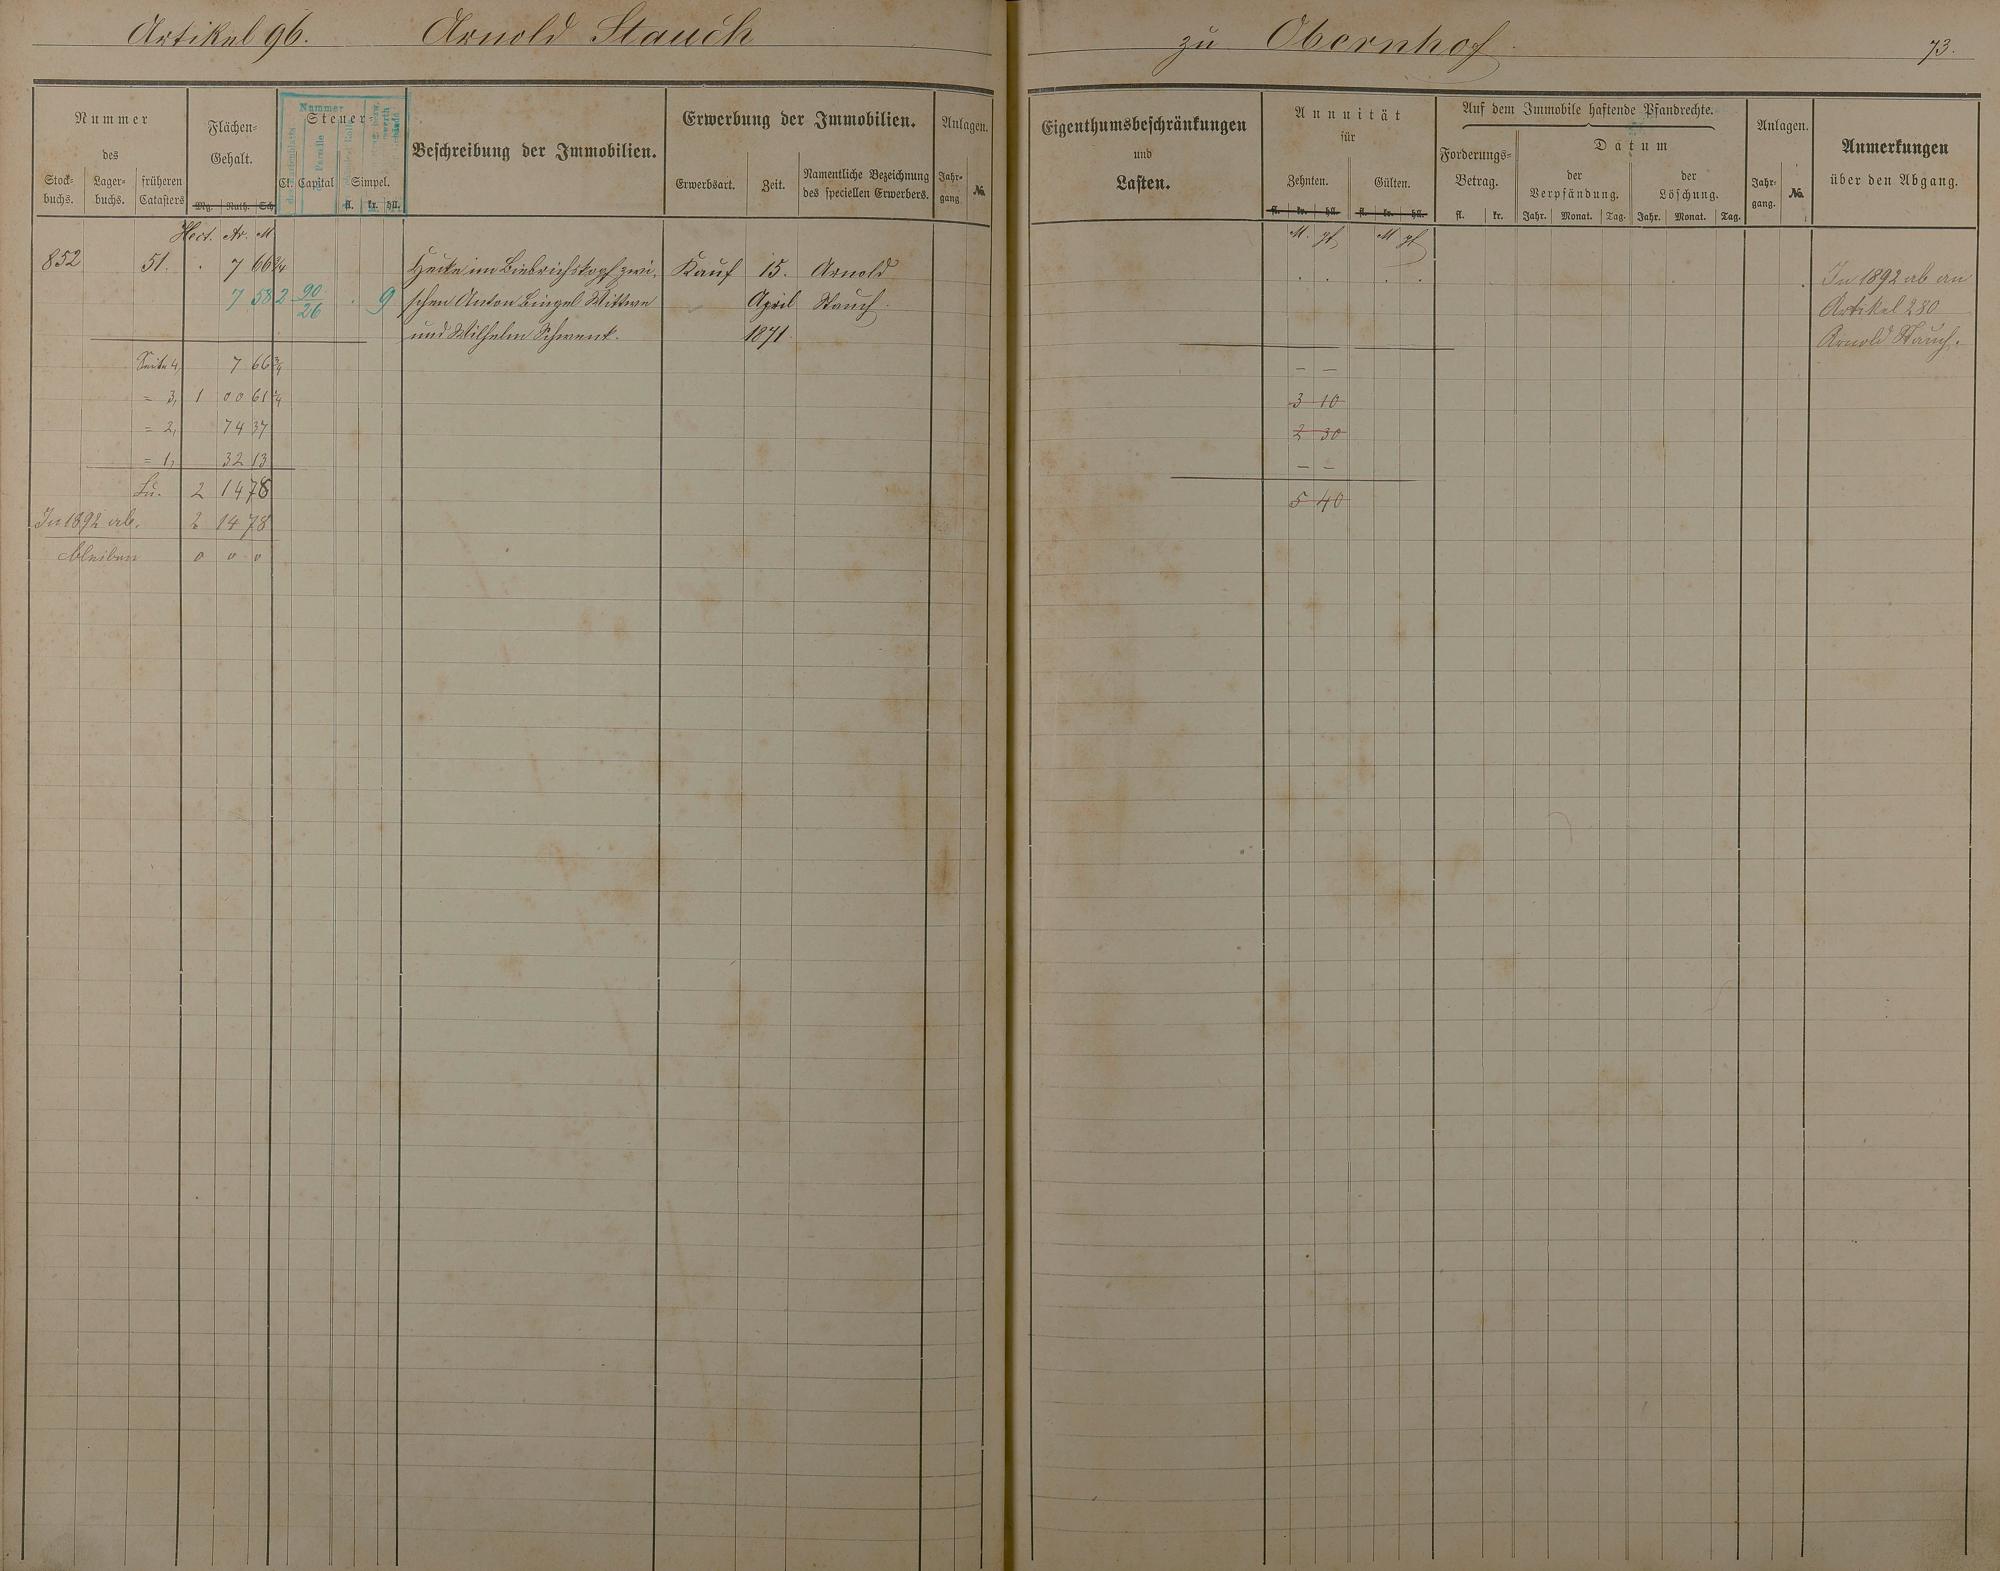 Artikel 96. Arnold Stauch zu Obernhof. 73.
Nummer
des
Stock=
buchs.
Lager=
buchs.
früheren
Catasters
Flächen=
Gehalt.
Mg. Ruth. Sch.
Nummer
Steuer=
Cl. Capital Simpel.
fl. kr. hll.
Beschreibung der Immobilien.
Erwerbung der Immobilien.
Erwerbsart.
Zeit.
Namentliche Bezeichnung
des speciellen Erwerbers.
Anlagen.
Jahr=
gang.
№.
Eigenthumsbeschränkungen
und
Lasten.
Annuität
für
Zehnten. Gülten.
fl. kr. hll. fl. kr. hll.
Auf dem Immobile haftende Pfandrechte.
Forderungs=
Betrag.
fl. kr.
Datum
der
Verpfändung.
Jahr. Monat. Tag.
der
Löschung.
Jahr. Monat. Tag.
Anlagen.
Jahr=
gang.
№.
Anmerkungen
über den Abgang.
Hect. Ar. M M. pf M pf
852 51. . 7 66 3/4 Hecke im Biebrichskopf zwi= Kauf 15. Arnold In 1892 ab an
7 58 2 90/26 . 9 schen Anton Bingel Wittwe April Stauch. Artikel 280
und Wilhelm Schwenk. 1871. Arnold Stauch.
Seite 4, 7 66 3/4 — —
= 3, 1 00 61 1/4 3 10
= 2, 74 37 2 30
= 1, 32 13 — —
Su. 2 14 78 5 40
In 1892 ab. 2 14 78
bleiben 0 0 0